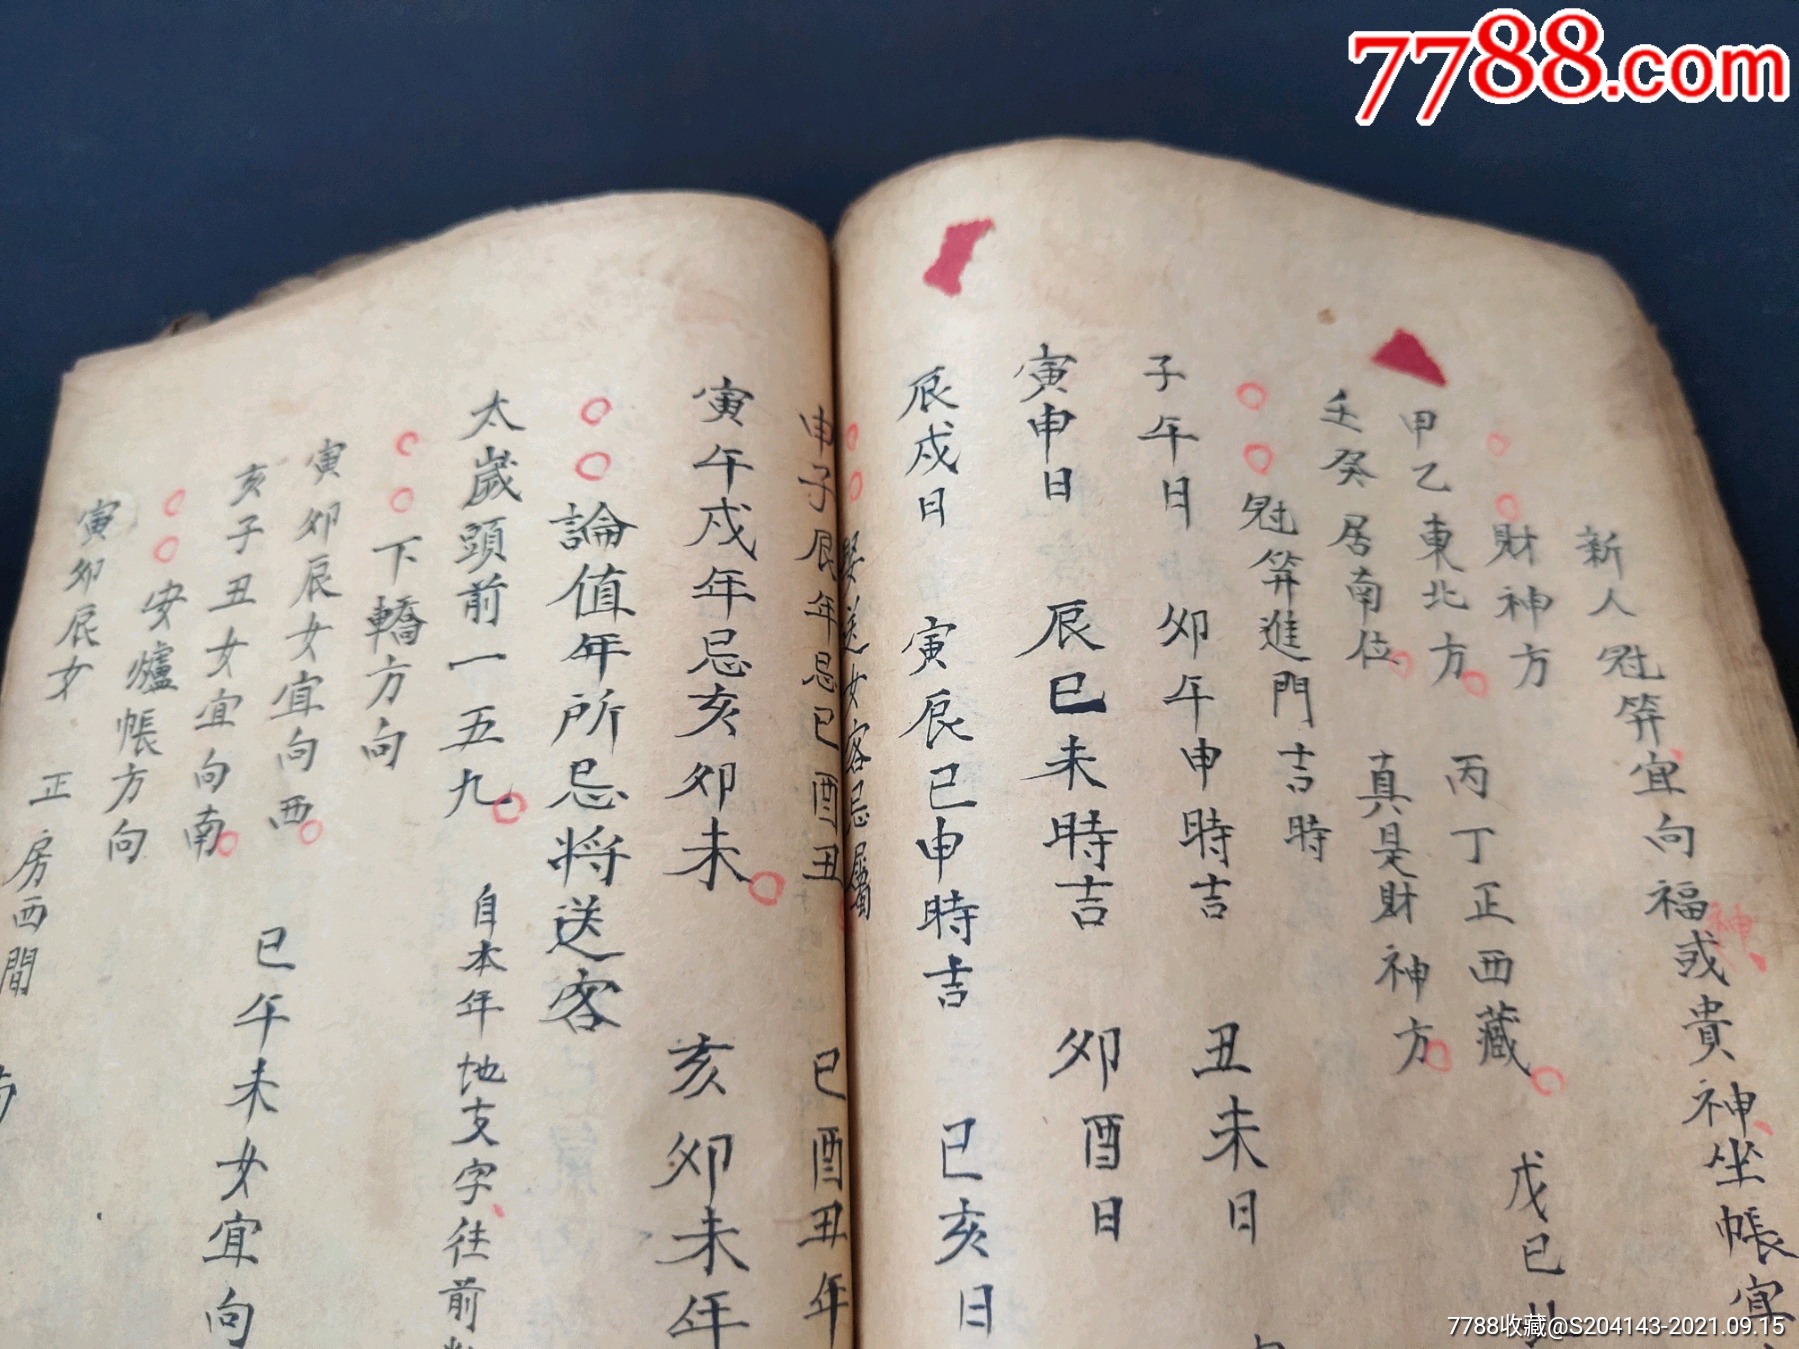 7788.com
新人冠笄宜向福神或貴神坐帳宜
財神方
甲乙東北方 丙丁正西藏 戊己
壬癸居南位 真是財神方
冠笄進門吉時
子午日 卯午申時吉 丑未日
寅申日 辰巳未時吉 卯酉日
辰戌日 寅辰巳申時吉 巳亥日
娶送女客忌屬
申子辰年忌巳酉丑 巳酉丑年
寅午戌年忌亥卯未 亥卯未年
論值年所忌將送客
太歲頭前一五九 自本年地支字往前
下轎方向
寅卯辰女宜向西 巳午未女宜向
亥子丑女宜向南
安爐帳方向
寅卯辰女 正房西間
7788收藏@S204143-2021.09.15